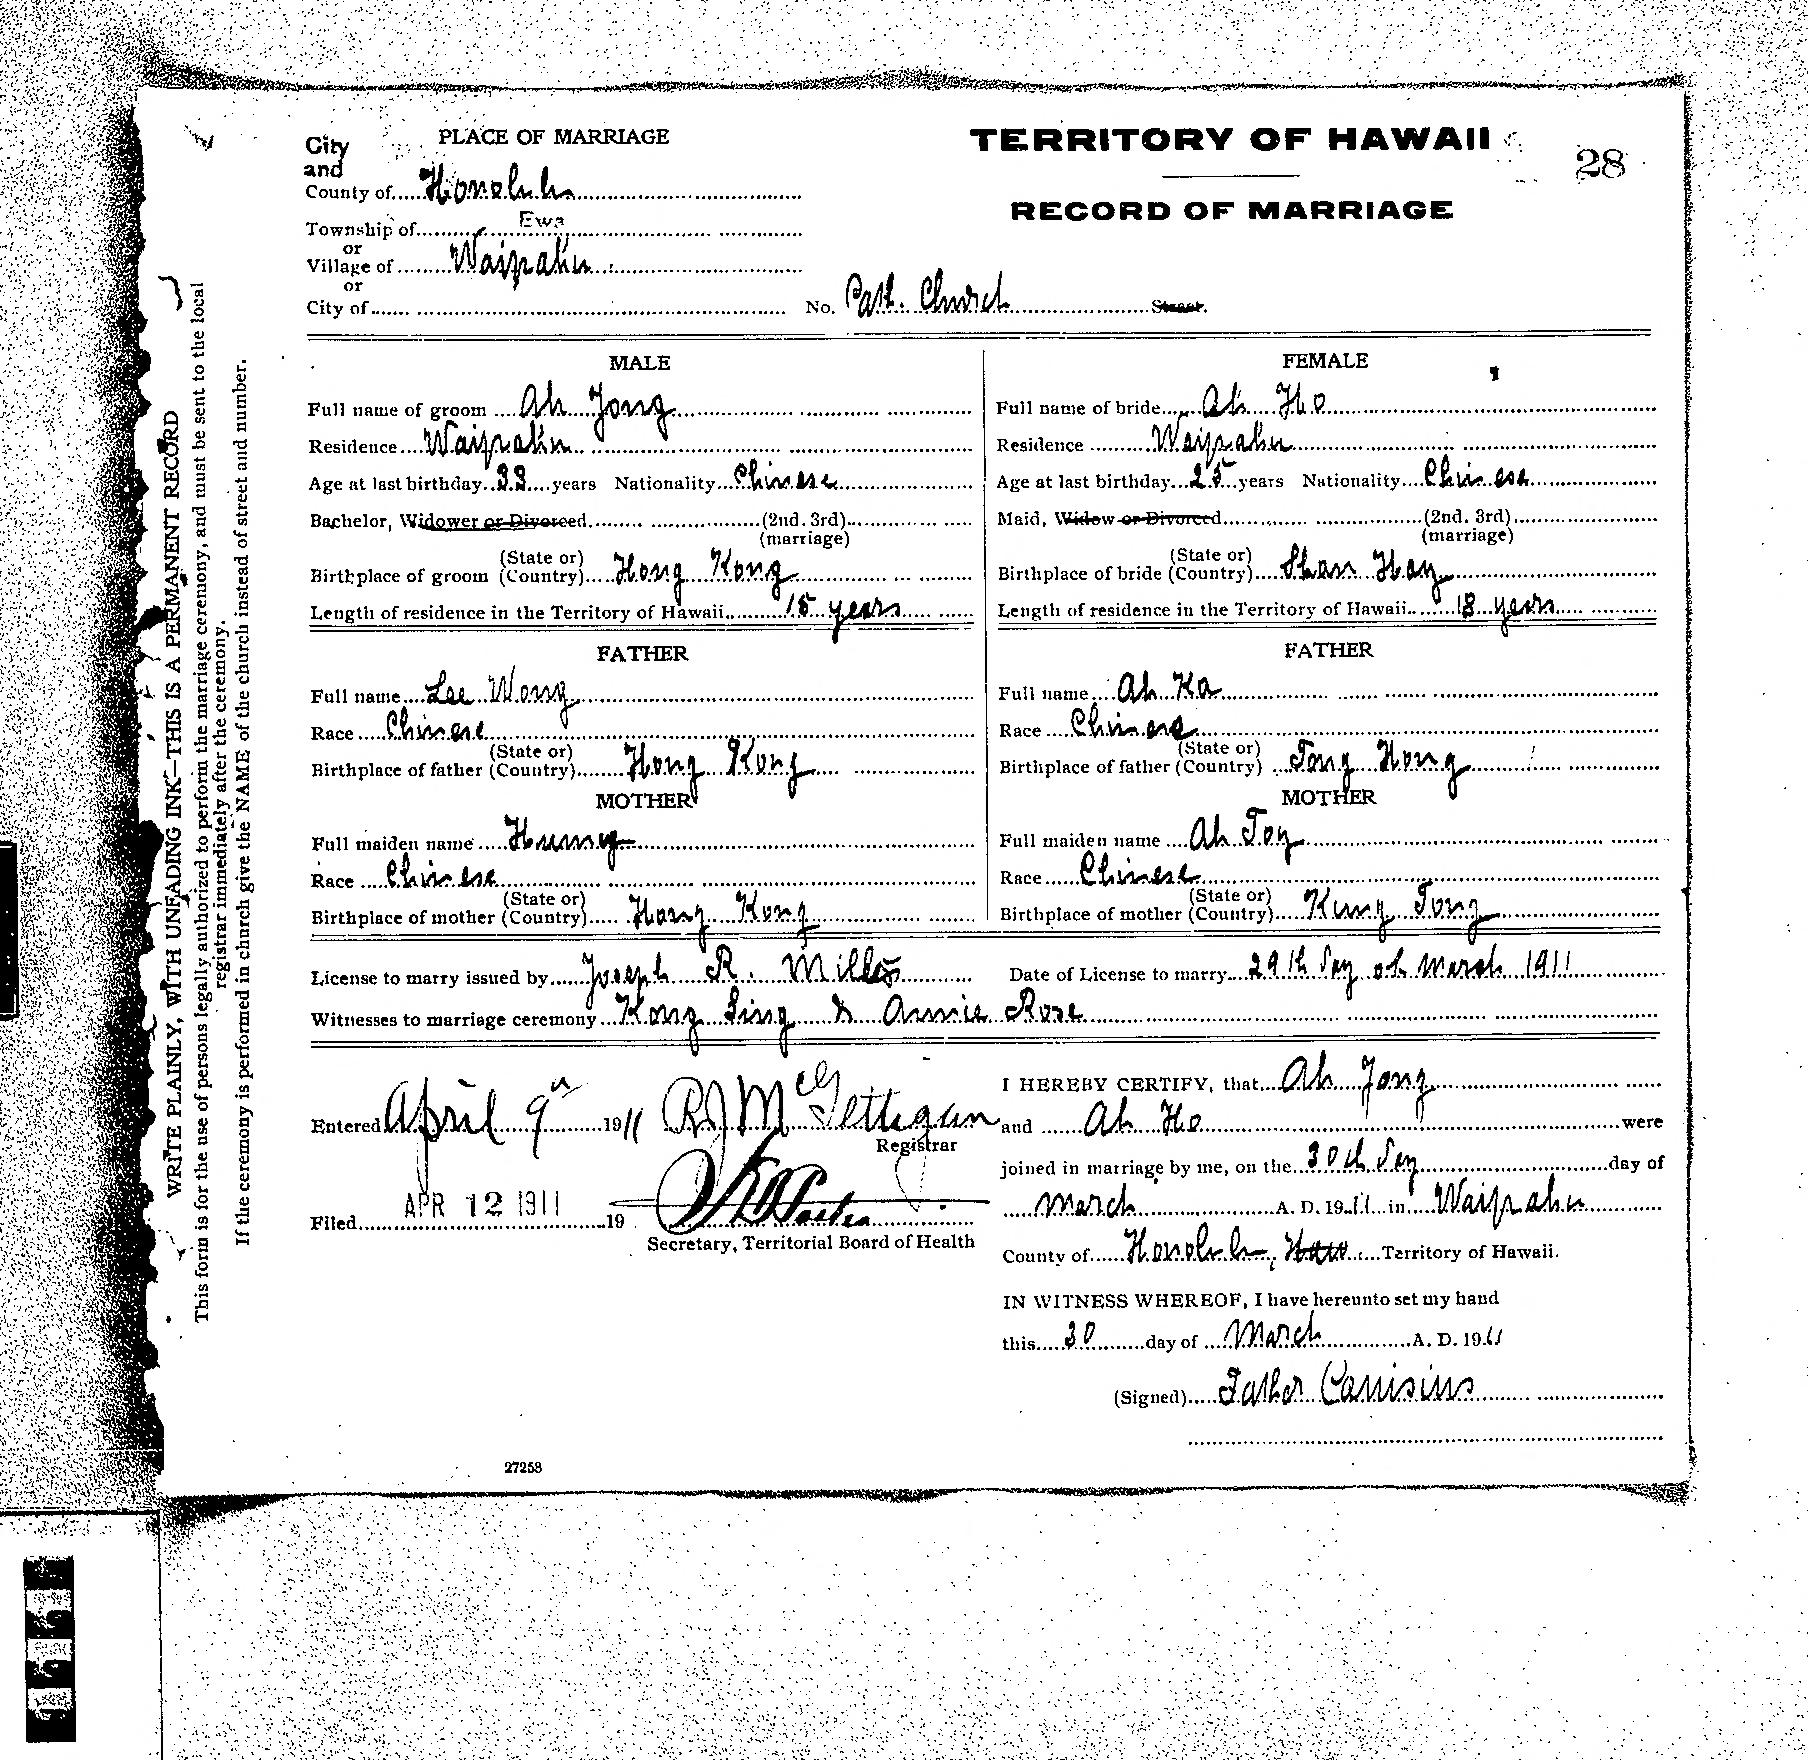 City
and
PLACE OF MARRIAGE
County of Honolulu
Township of Ewa
or
Village of Waipahu
or
City of
TERRITORY OF HAWAII
28
RECORD OF MARRIAGE
No. Cath. Church Street.
MALE
Full name of groom Ah Jong
Residence Waipahu
Age at last birthday 33 years Nationality Chinese
Bachelor, Widower or Divorced (2nd. 3rd)
(marriage)
(State or)
Birthplace of groom (Country) Hong Kong
Length of residence in the Territory of Hawaii 15 years
FATHER
Full name Lee Wong
Race Chinese
(State or)
Birthplace of father (Country) Hong Kong
MOTHER
Full maiden name Hung
Race Chinese
(State or)
Birthplace of mother (Country) Hong Kong
FEMALE
Full name of bride Ah Ho
Residence Waipahu
Age at last birthday 25 years Nationality Chinese
Maid, Widow or Divorced (2nd. 3rd)
(marriage)
(State or)
Birthplace of bride (Country) Shan Hay
Length of residence in the Territory of Hawaii 18 years
FATHER
Full name Ah Ka
Race Chinese
(State or)
Birthplace of father (Country) Tong Hong
MOTHER
Full maiden name Ah Toy
Race Chinese
(State or)
Birthplace of mother (Country) Kung Tong
License to marry issued by Joseph R. Mills Date of License to marry 29th day of March 1911
Witnesses to marriage ceremony Kong Sing & Annie Rose
Entered April 9th 1911 R J McGettigan
Registrar
Filed APR 12 1911 19
Secretary, Territorial Board of Health
I HEREBY CERTIFY, that Ah Jong
and Ah Ho were
joined in marriage by me, on the 30th day day of
March A. D. 1911 in Waipahu
County of Honolulu, Haw Territory of Hawaii.
IN WITNESS WHEREOF, I have hereunto set my hand
this 30 day of March A. D. 1911
(Signed) Father Canisius
27258
WRITE PLAINLY, WITH UNFADING INK—THIS IS A PERMANENT RECORD
This form is for the use of persons legally authorized to perform the marriage ceremony, and must be sent to the local
registrar immediately after the ceremony.
If the ceremony is performed in church give the NAME of the church instead of street and number.